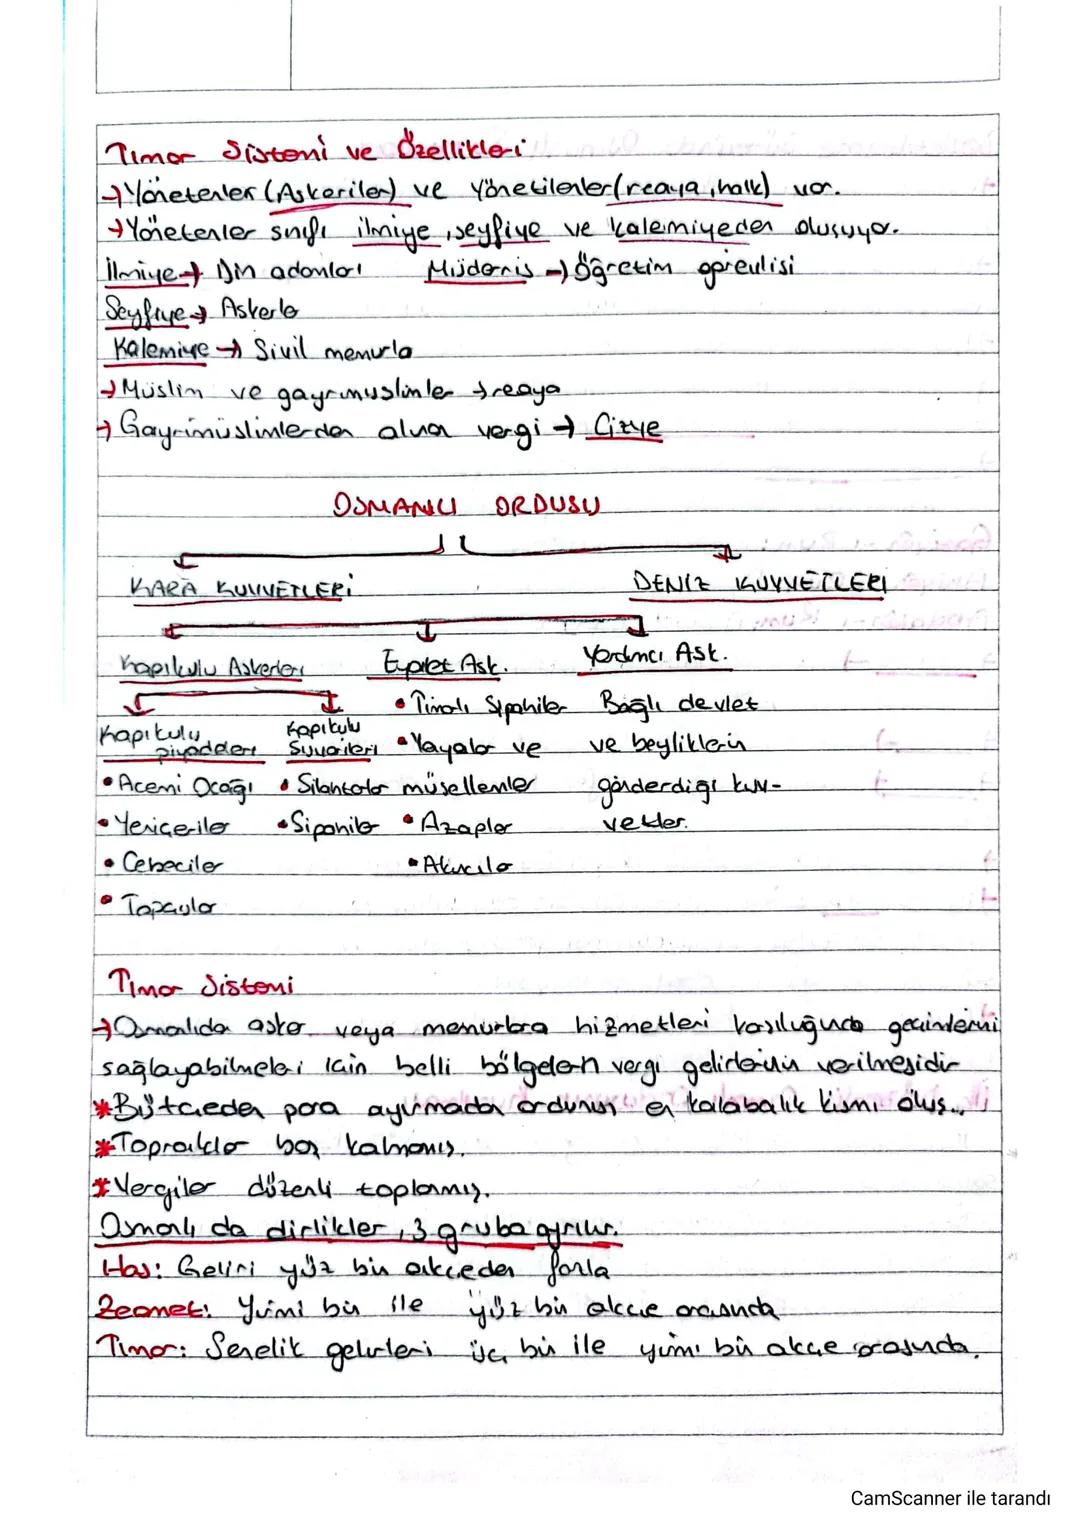 Tımar Sistemi ve Özellikleri
→Yönetenler (Askeriler) ve Yönetilenler (reaya, halk) var.
→Yönetenler sınıfı ilmiye, seyfiye ve kalemiyeden oluşuyor.
İlmiye→ Din adamları Müderris→ Öğretim görevlisi
Seyfiye→ Askerler
Kalemiye→ Sivil memurlar
→Müslim ve gayrımüslimler →reaya
→Gayrimüslimlerden alınan vergi→ Cizye
OSMANLI ORDUSU
KARA KUVVETLERİ DENİZ KUVVETLERİ
Kapıkulu Askerleri Eyalet Ask. Yardımcı Ask.
• Tımarlı Sipahiler Bağlı devlet
Kapıkulu Kapıkulu
piyadeleri Süvarileri • Yayalar ve ve beyliklerin
• Acemi Ocağı • Silahtarlar müsellemler gönderdiği kuv-
• Yeniçeriler • Sipahiler • Azaplar vetler.
• Cebeciler • Akıncılar
• Topçular
Tımar Sistemi
→Osmanlıda asker veya memurlara hizmetleri karşılığında geçimlerini
sağlayabilmeleri için belli bölgelerin vergi gelirlerinin verilmesidir
*Bütçeden para ayırmadan ordunun en kalabalık kısmı oluş...
*Topraklar boş kalmamış.
*Vergiler düzenli toplanmış.
Osmanlı da dirlikler, 3 gruba ayrılır.
Has: Geliri yüz bin akçeden fazla
Zeamet: Yirmi bin ile yüz bin akçe arasında
Tımar: Senelik gelirleri üç bin ile yirmi bin akçe arasında.
CamScanner ile tarandı